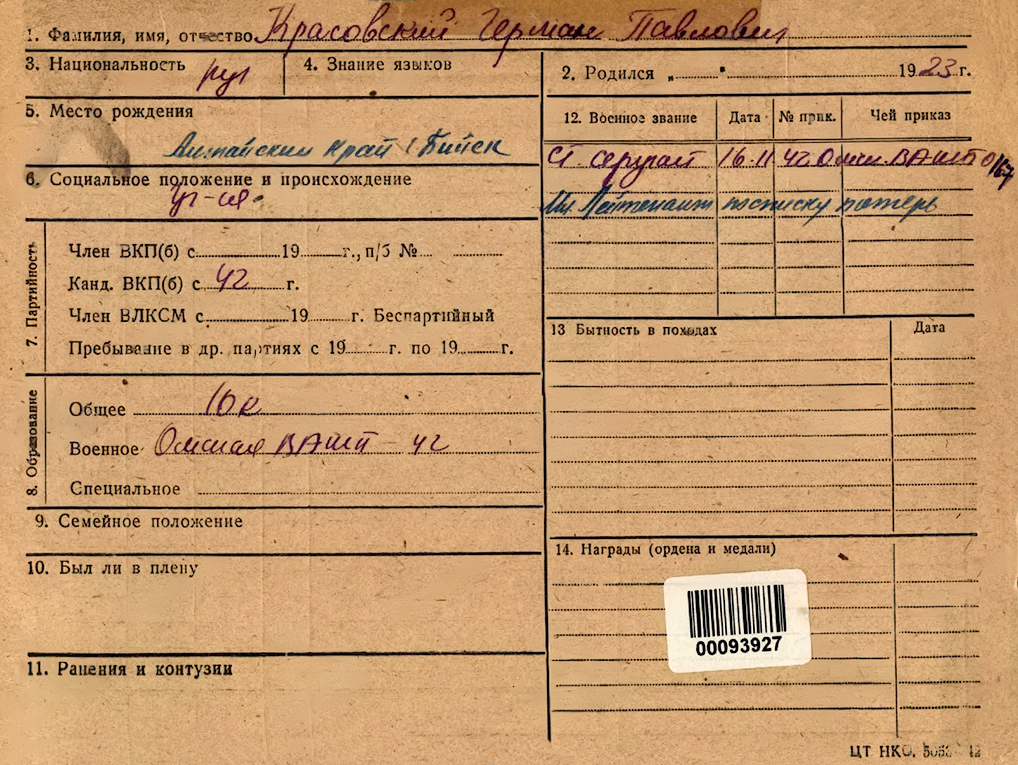 1. Фамилия, имя, отчество Красовский Герман Павлович
3. Национальность рус
4. Знание языков
2. Родился „ " 1923 г.
5. Место рождения
Алтайский край г Бийск
6. Социальное положение и происхождение
уч-ся
7. Партийность
Член ВКП(б) с 19 г., п/б №
Канд. ВКП(б) с 42 г.
Член ВЛКСМ с 19 г. Беспартийный
Пребывание в др. партиях с 19 г. по 19 г.
8. Образование
Общее 10 к
Военное Омская ВАШП - 42
Специальное
9. Семейное положение
10. Был ли в плену
11. Ранения и контузии
12. Военное звание Дата № прик. Чей приказ
Ст сержант 16.11 42 Омск. ВАШП 0167
Мл. Лейтенант по списку потерь
13 Бытность в походах Дата
14. Награды (ордена и медали)
00093927
ЦТ НКО. 42